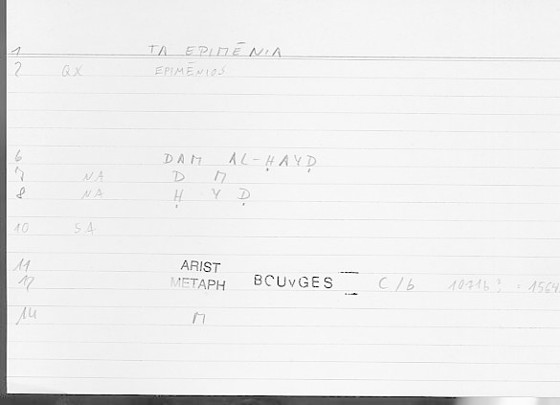 1 TA EPIMĒNIA
2 QX EPIMĒNIOS
6 DAM AL-ḤAYḌ
7 NA D M
8 NA Ḥ Y Ḍ
10 SA
11 ARIST
12 METAPH BOUYGES C/b
14 M